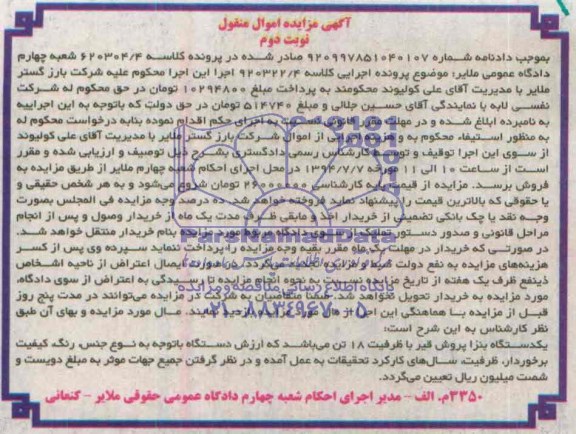 آگهی مزایده اموال منقول
نوبت دوم
بموجب دادنامه شماره ۹۲۰۹۹۷۸۵۱۰۴۰۱۰۷ صادر شده در پرونده کلاسه ۶۲۰۳۰۴/۴ شعبه چهارم
دادگاه عمومی ملایر: موضوع پرونده اجرایی کلاسه ۹۲۰۳۲۲/۴ اجرا این اجرا محکوم علیه شرکت بارز گستر
ملایر با مدیریت آقای علی کولیوند محکومند به پرداخت مبلغ ۱۰۲۹۴۸۰۰ تومان در حق محکوم له شرکت
نفسی لابه با نمایندگی آقای حسین جلالی و مبلغ ۵۱۴۷۴۰ تومان در حق دولت که باتوجه به این اجراییه
به نامبرده ابلاغ شده و در مهلت مقرر قانونی نسبت به اجرای حکم اقدام نموده بنابه درخواست محکوم له
به منظور استیفاء محکوم به و هزینه اجرایی از اموال شرکت بارز گستر ملایر با مدیریت آقای علی کولیوند
از سوی این اجرا توقیف و توسط کارشناس رسمی دادگستری بشرح ذیل توصیف و ارزیابی شده و مقرر
است از ساعت ۱۰ الی ۱۱ مورخه ۱۳۹۴/۷/۷ در محل اجرای احکام شعبه چهارم ملایر از طریق مزایده به
فروش برسد. مزایده از قیمت پایه کارشناسی ۲۶۰۰۰۰۰۰ تومان شروع می‌شود و به هر شخص حقیقی و
یا حقوقی که بالاترین قیمت را پیشنهاد نماید فروخته خواهد شد. ده درصد وجه مزایده فی المجلس بصورت
وجه نقد یا چک بانکی تضمینی از خریدار اخذ و مابقی ظرف مدت یک ماه از خریدار وصول و پس از انجام
مراحل قانونی و صدور دستور تملیک از سوی دادگاه مربوط مورد مزایده بنام خریدار منتقل خواهد شد.
در صورتی که خریدار در مهلت یک ماه مقرر بقیه وجه مزایده را پرداخت ننماید سپرده وی پس از کسر
هزینه‌های مزایده به نفع دولت ضبط و مزایده تجدید می‌گردد. در صورت ایصال اعتراض از ناحیه اشخاص
ذینفع ظرف یک هفته از تاریخ مزایده نسبت به نحوه انجام مزایده تا رسیدگی به اعتراض از سوی دادگاه،
مورد مزایده به خریدار تحویل نخواهد شد. ضمناً متقاضیان به شرکت در مزایده می‌توانند در مدت پنج روز
قبل از مزایده با هماهنگی این اجرا از مال مورد مزایده بازدید نمایند. مال مورد مزایده و بهای آن طبق
نظر کارشناس به این شرح است:
یکدستگاه بنزا پروش قیر با ظرفیت ۱۸ تن می‌باشد که ارزش دستگاه باتوجه به نوع جنس، رنگ، کیفیت
برخوردار، ظرفیت، سال‌های کارکرد تحقیقات به عمل آمده و در نظر گرفتن جمیع جهات موثر به مبلغ دویست و
شصت میلیون ریال تعیین می‌گردد.
۳۳۵۰م. الف - مدیر اجرای احکام شعبه چهارم دادگاه عمومی حقوقی ملایر - کنعانی
ParsNamadData
پایگاه اطلاع رسانی مناقصه و مزایده
۰۲۱-۸۸۳۴۹۶۷۰-۵